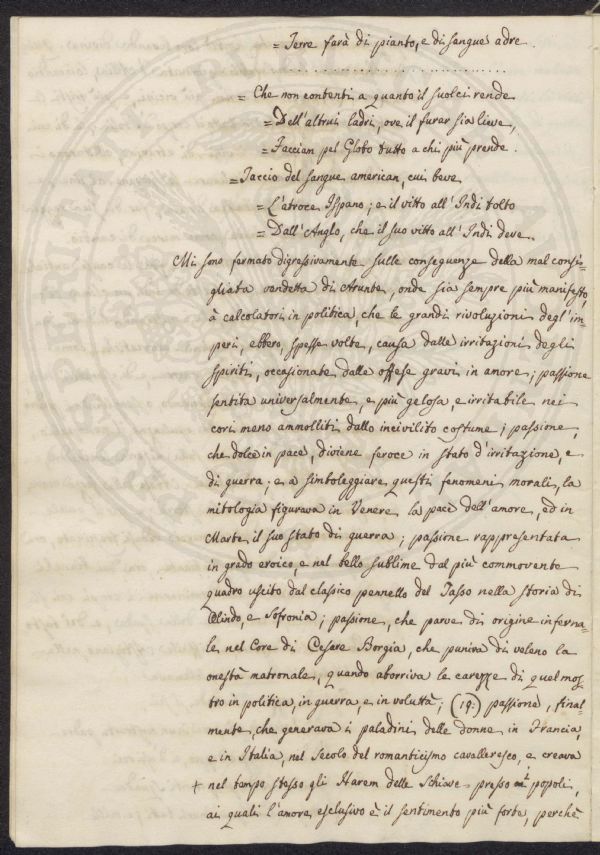 = Terre farà di pianto, e di sangue adre.
. . . . . . . . . . . . . . . . . . . . . . . .
= Che non contenti a quanto il suol ci rende
= Dell'altrui ladri, ove il furar sia lieve,
= Faccian pel Globo tutto a chi più prende.
= Taccio del sangue american, cui beve
= L'atroce Ispano; e il vitto all'Indi tolto
= Dall'Anglo, che il suo vitto all'Indi deve.
Mi sono fermato digressivamente sulle conseguenze della mal consi=
gliata vendetta di Arunte, onde sia sempre più manifesto,
à calcolatori in politica, che le grandi rivoluzioni degl'im=
peri, ebbero, spesse volte, causa dalle irritazioni degli
spiriti, occasionate dalle offese gravi in amore; passione
sentita universalmente, e più gelosa, e irritabile nei
cori meno ammolliti dallo incivilito costume; passione,
che dolce in pace, diviene feroce in stato d'irritazione, e
di guerra; e a simboleggiare questi fenomeni morali, la
mitologia figurava in Venere la pace dell'amore, ed in
Marte il suo stato di guerra; passione rappresentata
in grado eroico, e nel bello sublime dal più commovente
quadro uscito dal classico pennello del Tasso nella storia di
Olindo e Sofronia; passione, che parve di origine inferna=
le nel Core di Cesare Borgia, che puniva di veleno la
onestà matronale, quando aborriva le carezze di quel mos=
tro in politica, in guerra, e in voluttà; (19:) passione, final=
mente, che generava i paladini delle donne in Francia,
e in Italia, nel secolo del romanticismo cavalleresco, e creava
+ nel tempo stesso gli Harem delle Schiave presso i popoli,
ai quali l'amore esclusivo è il sentimento più forte, perchè